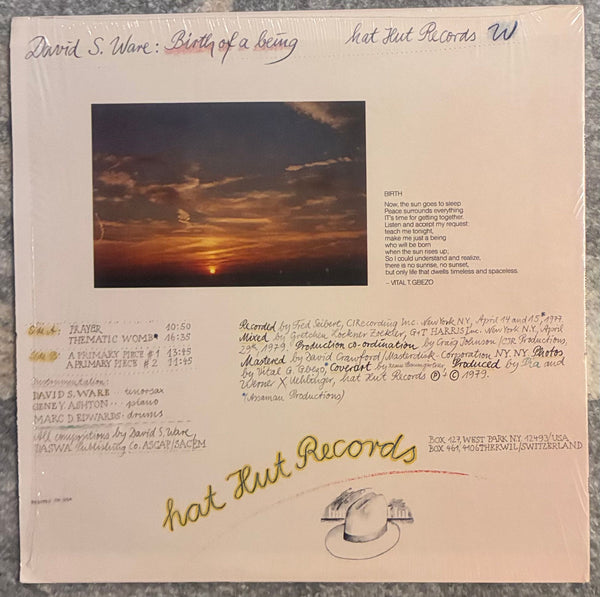 David S. Ware: Birth of a being
hat Hut Records W
BIRTH
Now, the sun goes to sleep
Peace surrounds everything
IT's time for getting together.
Listen and accept my request:
teach me tonight,
make me just a being
who will be born
when the sun rises up,
So I could understand and realize,
there is no sunrise, no sunset,
but only life that dwells timeless and spaceless.
– VITAL T. GBEZO
PRAYER 10:50
THEMATIC WOMB 16:35
A PRIMARY PIECE #1 13:45
A PRIMARY PIECE #2 11:45
Instrumentation:
DAVID S. WARE tenorsax
GENE Y. ASHTON piano
MARC D EDWARDS drums
All compositions by David S. Ware,
DASWA Publishing Co. ASCAP/SACEM
Recorded by Fred Seibert, CIRecording Inc. New York N.Y., April 14 and 15,* 1977
Mixed by Gretchen Zoekler, G+T HARRIS Inc. New York N.Y., April
29th, 1979. Production co-ordination by Craig Johnson/CJR Productions.
Mastered by David Crawford/Masterdisk Corporation NY, NY. Photos
by Vital G. Gbezo, Coverart by Produced by Pia and
Werner X Uehlinger, hat Hut Records ℗ + © 1979.
*(Assaman Productions)
BOX 127, WEST PARK N.Y. 12493/USA
BOX 461, 4106 THERWIL/SWITZERLAND
hat Hut Records
Printed in USA